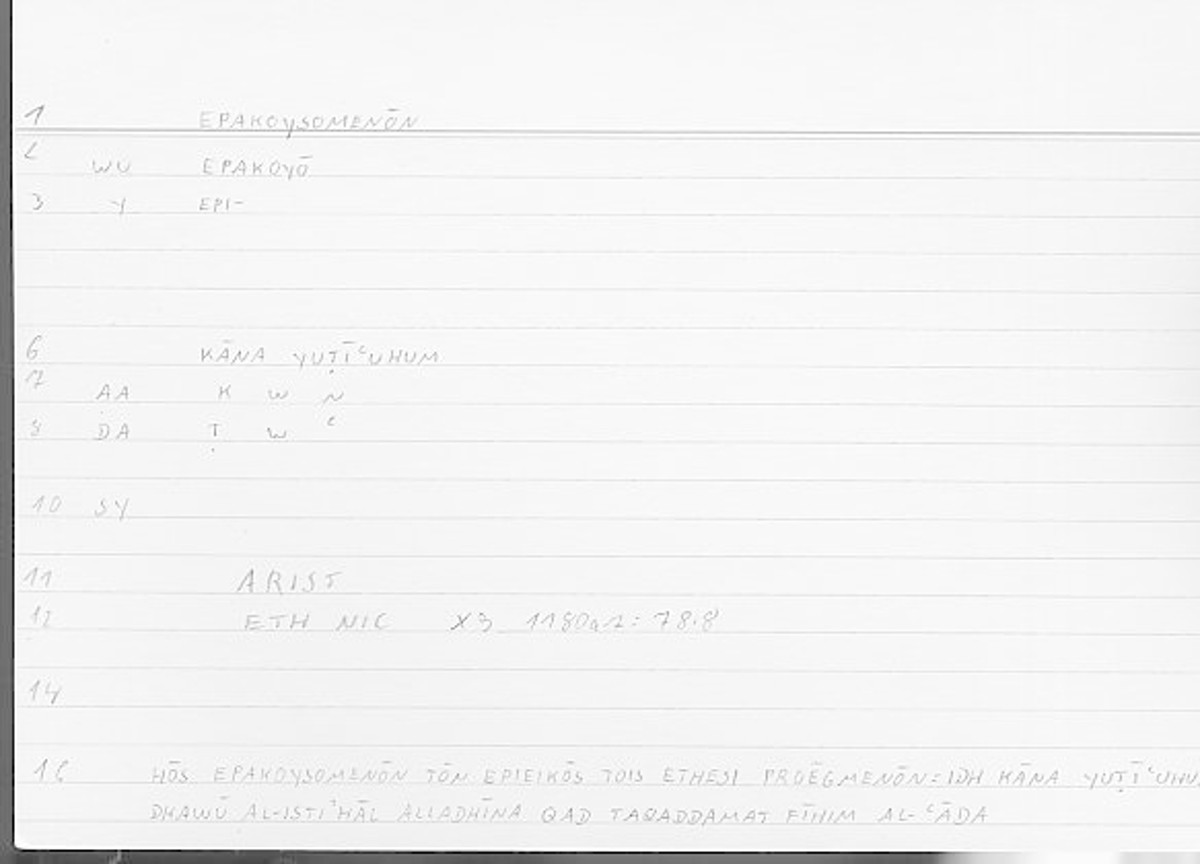 1 EPAKOYSOMENŌN
2 WU EPAKOYŌ
3 Y EPI-
6 KĀNA YUṬĪʿUHUM
7 AA K W N
8 DA Ṭ W ʿ
10 SY
11 ARIST
12 ETH NIC X3 1180a7: 78.8
14
16 HŌS EPAKOYSOMENŌN TŌN EPIEIKŌS TOIS ETHESI PROĒGMENŌN = IDH KĀNA YUṬĪʿUHU
DHAWŪ AL-ISTIʾHĀL ALLADHĪNA QAD TAQADDAMAT FĪHIM AL-ʿĀDA